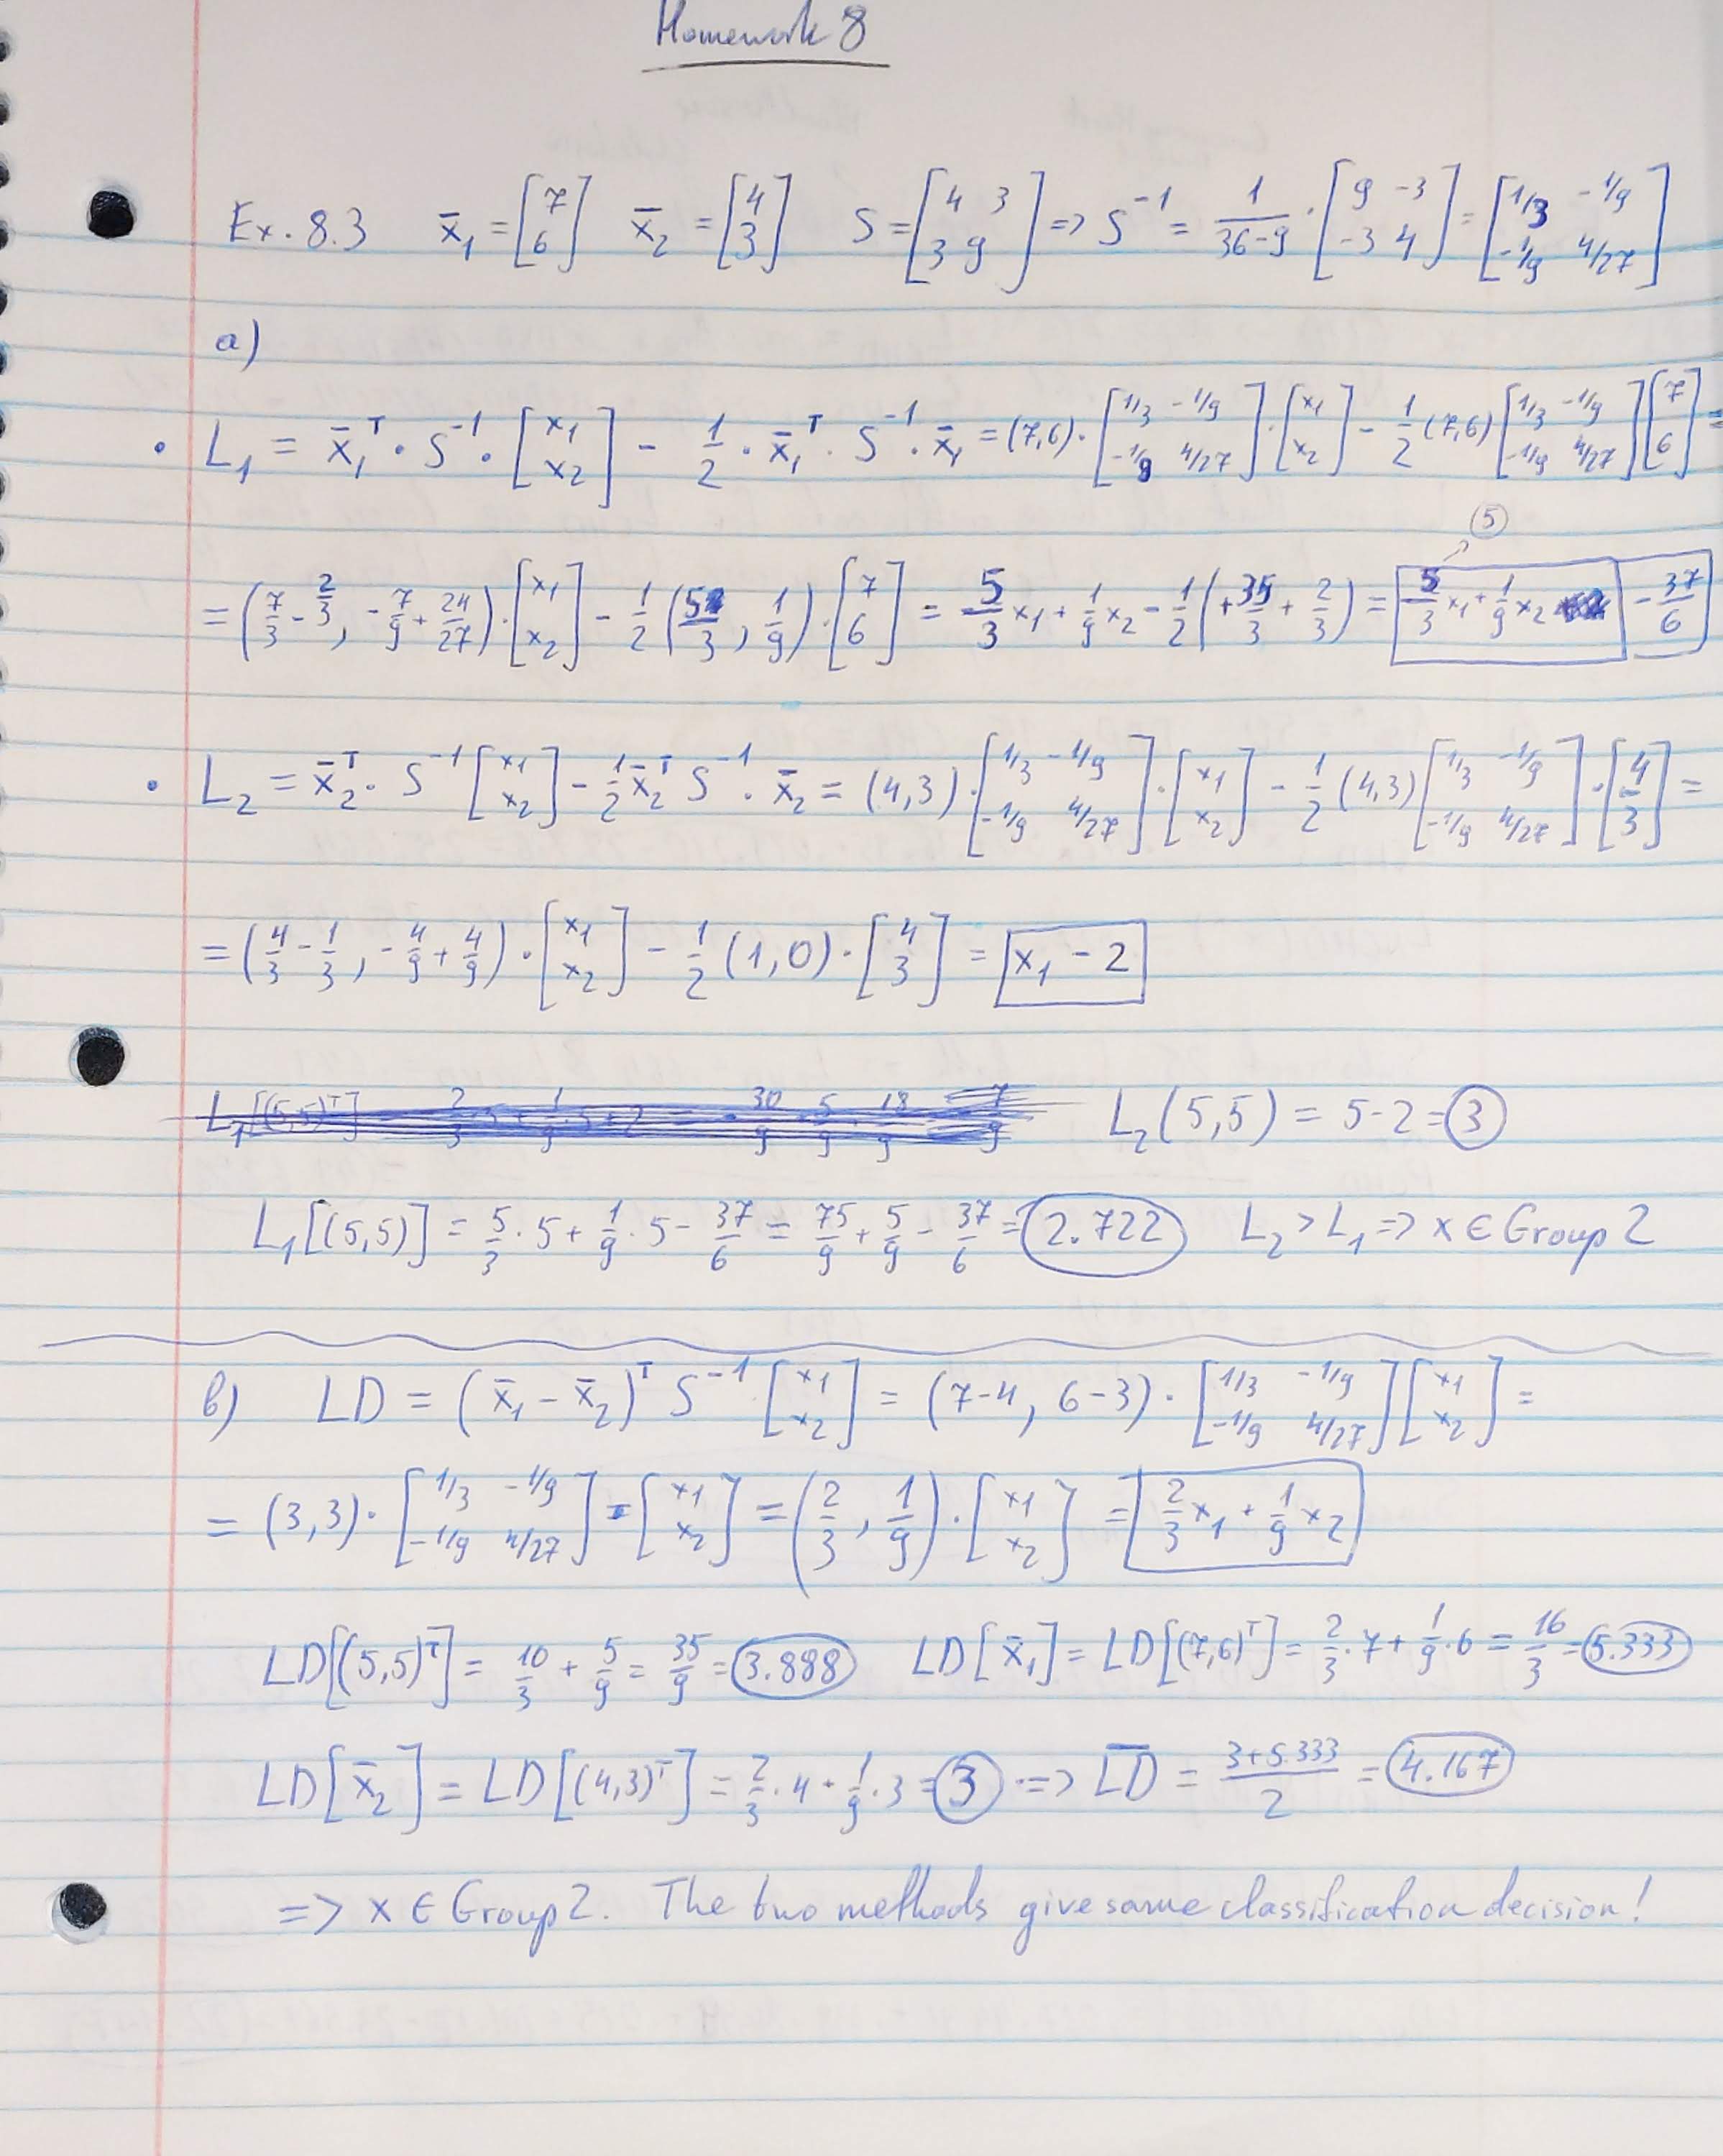 Homework 8
Ex. 8.3 x̄₁ = [7 6] x̄₂ = [4 3] S = [4 3 3 9] => S⁻¹ = 1/(36-9) · [9 -3 -3 4] = [1/3 -1/9 -1/9 4/27]
a)
• L₁ = x̄₁ᵀ · S⁻¹ · [x₁ x₂] - 1/2 · x̄₁ᵀ · S⁻¹ · x̄₁ = (7,6) · [1/3 -1/9 -1/9 4/27] · [x₁ x₂] - 1/2 (7,6) [1/3 -1/9 -1/9 4/27] [7 6] =
(5)
= (7/3 - 2/3, -7/9 + 24/27) · [x₁ x₂] - 1/2 (5/3, 1/9) · [7 6] = 5/3 x₁ + 1/9 x₂ - 1/2 (+35/3 + 2/3) = 5/3 x₁ + 1/9 x₂ - 37/6
• L₂ = x̄₂ᵀ · S⁻¹ [x₁ x₂] - 1/2 x̄₂ᵀ S⁻¹ · x̄₂ = (4,3) · [1/3 -1/9 -1/9 4/27] · [x₁ x₂] - 1/2 (4,3) [1/3 -1/9 -1/9 4/27] · [4 3] =
= (4/3 - 1/3, -4/9 + 4/9) · [x₁ x₂] - 1/2 (1,0) · [4 3] = x₁ - 2
L₂(5,5) = 5-2 = 3
L₁[(5,5)] = 5/3 · 5 + 1/9 · 5 - 37/6 = 75/9 + 5/9 - 37/6 = 2.722 L₂ > L₁ => x ∈ Group 2
b) LD = (x̄₁ - x̄₂)ᵀ S⁻¹ [x₁ x₂] = (7-4, 6-3) · [1/3 -1/9 -1/9 4/27] [x₁ x₂] =
= (3,3) · [1/3 -1/9 -1/9 4/27] · [x₁ x₂] = (2/3, 1/9) · [x₁ x₂] = 2/3 x₁ + 1/9 x₂
LD[(5,5)ᵀ] = 10/3 + 5/9 = 35/9 = 3.888 LD[x̄₁] = LD[(7,6)ᵀ] = 2/3 · 7 + 1/9 · 6 = 16/3 = 5.333
LD[x̄₂] = LD[(4,3)ᵀ] = 2/3 · 4 + 1/9 · 3 = 3 => L̄D̄ = (3+5.333)/2 = 4.167
=> x ∈ Group 2. The two methods give same classification decision!